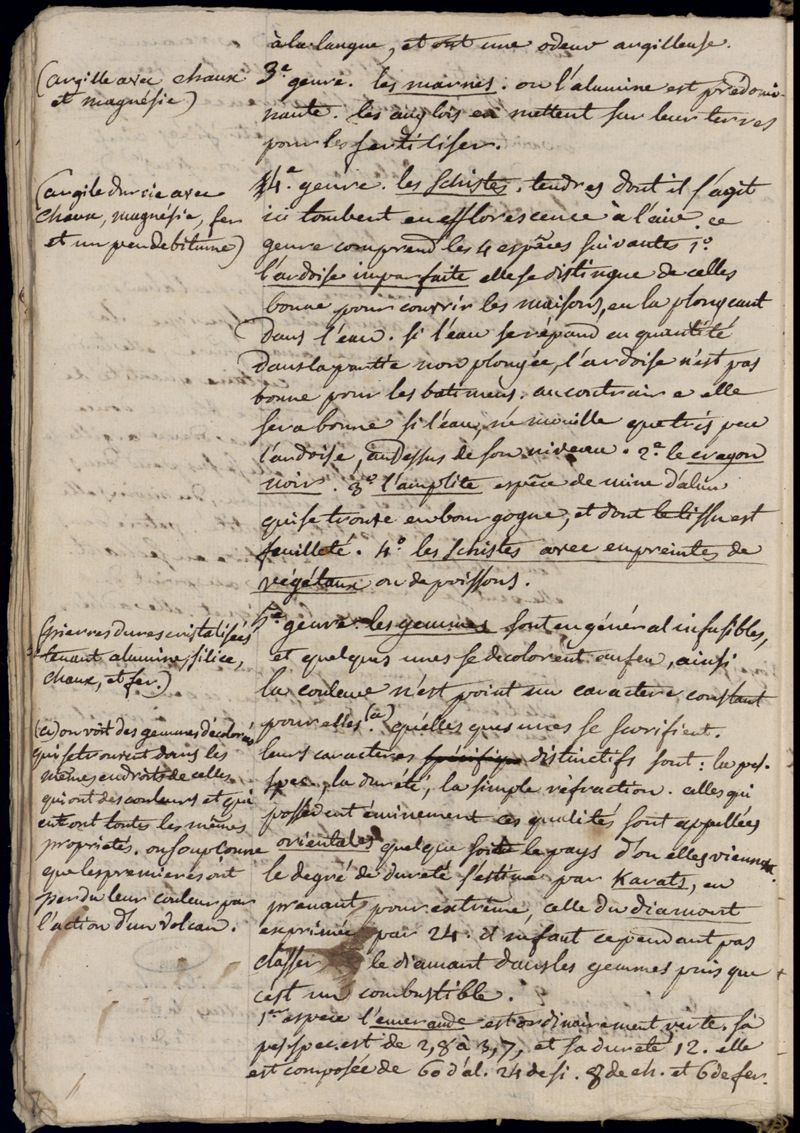 à la langue, et ont une odeur argilleuse.
(argille avec chaux
et magnésie)
3e genre. les marnes. ou l'alumine est prédomi-
nante. les anglois en mettent sur leur terres
pour les fertiliser.
(argile durcie avec
chaux, magnésie, fer
et un peu de bitume)
4e. genre. les schistes. tendres dont il s'agit
ici tombent en efflorescence à l'air. ce
genre comprend les 4 espèces suivantes 1°.
l'ardoise imparfaite elle se distingue de celles
bonne pour couvrir les maisons, en la plongeant
dans l'eau. si l'eau se répand en quantité
dans la partie non plongée, l'ardoise n'est pas
bonne pour les batimens. au contraire elle
sera bonne si l'eau, ne mouille que très peu
l'ardoise, au dessus de son niveau. 2e. le crayon
noir. 3° l'amplite espèce de mine d'alun
qui se trouve en bourgogne, et dont le tissu est
feuilleté. 4° les schistes avec empreintes de
végétaux ou de poissons.
(pierres dures cristalisées
tenant alumine, silice,
chaux, et fer.)
5e genre. les gemmes sont en général infusibles,
et quelques unes se décolorent au feu, ainsi
la couleur n'est point un caractere constant
pour elles (a). quelles ques unes se scorifient.
leurs caracteres spécifiqu distinctifs sont: la pes.
spec., la dureté, la simple réfraction. celles qui
possèdent éminement ces qualités sont appellées
orientales quelque soit le pays d'ou elles viennent.
le degré de dureté s'estime par Karats, en
prenant pour extrême, celle du diamont
exprimée par 24. il ne faut cependant pas
classer le diamant dans les gemmes puis que
c'est un combustible.
(a) on voit des gemmes décolorées
qui se trouvent dans les
mêmes endroits de celles
qui ont des couleurs et qui
ont toutes les mêmes
propriétés. on soupconne
que les premieres ont
perdu leur couleur par
l'action d'un volcan.
1ere espece l'emeraude est ordinairement verte. sa
pes. spec. est de 2,8 à 3,7, et sa dureté 12. elle
est composée de 60 d'al. 24 de si. 8 de ch. et 6 de fer.